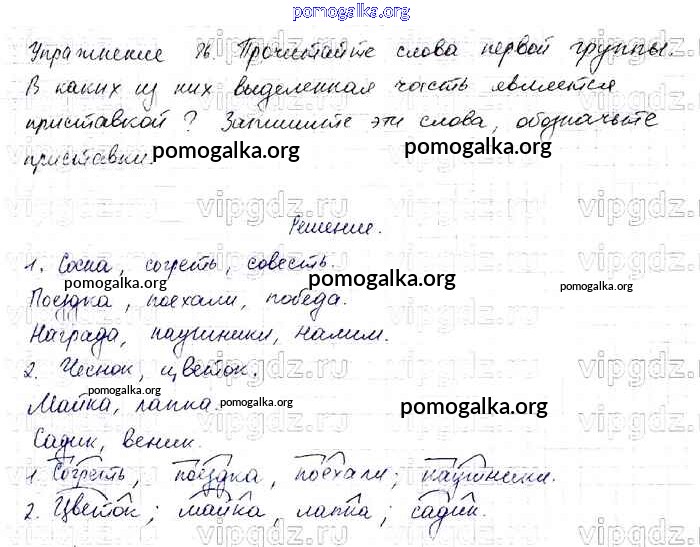 pomogalka.org
Упражнение 86. Прочитайте слова первой группы.
В каких из них выделенная часть является
приставкой? Запишите эти слова, обозначьте
приставки.
pomogalka.org pomogalka.org
vipgdz.ru vipgdz.ru vipgdz.ru
Решение.
1. Сосна, согреть, совесть.
pomogalka.org pomogalka.org
Поездка, поехали, победа.
Награда, наушники, налим.
2. Чеснок, цветок.
vipgdz.ru vipgdz.ru vipgdz.ru
pomogalka.org
Майка, лапка. pomogalka.org pomogalka.org
Садик, веник.
1. Согреть, поездка, поехали; наушники.
2. Цветок; майка, лапка; садик.
vipgdz.ru vipgdz.ru vipgdz.ru